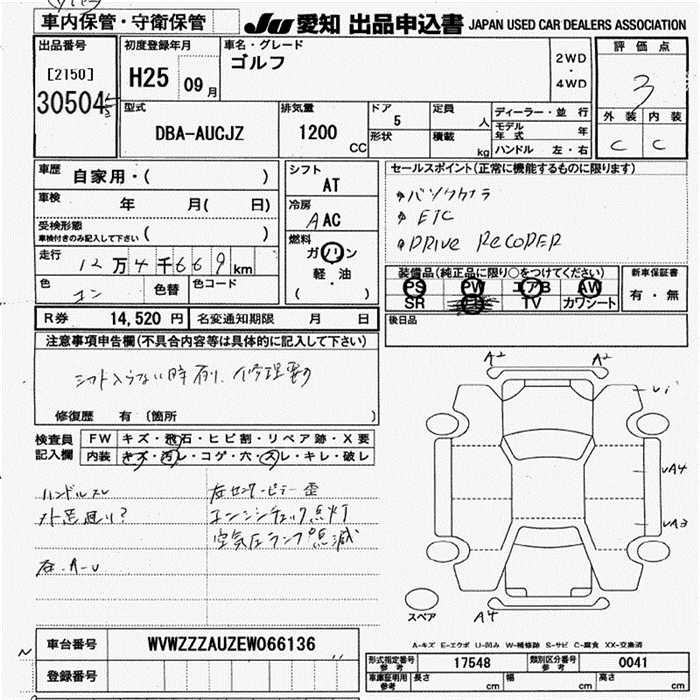 車内保管・守衛保管
JU 愛知 出品申込書 JAPAN USED CAR DEALERS ASSOCIATION
出品番号 初度登録年月 車名・グレード 評価点
[2150] H25 09月 ゴルフ 2WD・4WD 3
30504
型式 排気量 ドア 定員 ディーラー・並行 外装 内装
DBA-AUCJZ 1200 CC 5 人 モデル年式 年 C C
形状 積載 kg ハンドル 左・右
車歴 自家用・( ) シフト AT セールスポイント(正常に機能するものに限ります)
車検 年 月( 日) 冷房 AAC バックカメラ
受検形態 ETC
車検付きのみ記入して下さい ( ) 燃料 DRIVE RECODER
走行 12万4千669km ガソリン
軽・油
( )
装備品(純正品に限り○をつけてください) 新車保証書
色 コン 色替 色コード PS PW エアB AW 有・無
SR TV カワシート
R券 14,520円 名変通知期限 月 日 後日品
注意事項申告欄(不具合内容等は具体的に記入して下さい)
シフト入らない時有り、修理要す
修復歴 有 (箇所 )
A2 A2
検査員記入欄 FW キズ・飛石・ヒビ割・リペア跡・X要
内装 キズ・汚レ・コゲ・穴・スレ・キレ・破レ
ハンドルスレ 左センターピラー歪
エンジンチェック点灯
空気圧ランプ点滅
UA4
UA3
スペア A4
A-キズ E-エクボ U-凹み W-補修跡 S-サビ C-腐食 XX-交換済
車台番号 WVWZZZAUZEW066136
登録番号
形式指定番号参考 17548 類別区分番号参考 0041
車庫証明用参考 長さ cm 幅 cm 高さ cm